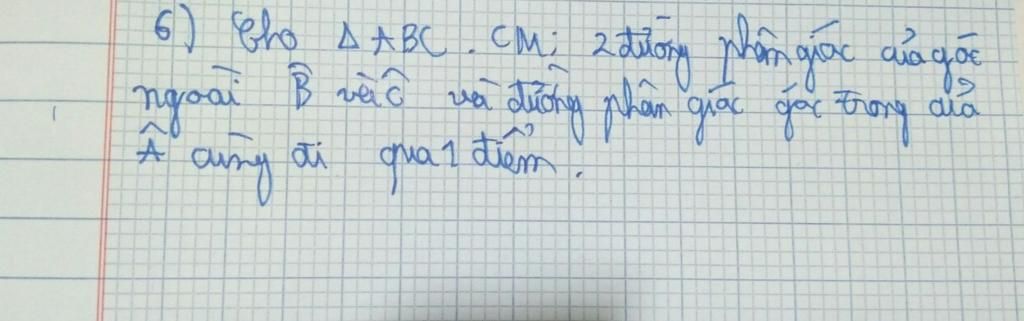 6) Cho Δ ABC . CM: 2 đường phân giác của góc
ngoài B̂ và Ĉ và đường phân giác góc trong của
Â cùng đi qua 1 điểm.